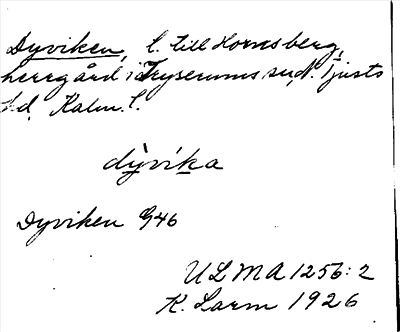 Dyviken, l. till Hornsberg,
herrgård i Tryserums sn, N. Tjusts
hd, Kalm. l.
dy�ạ̀vi´ka
Dyviken G46
ULMA 1256:2
K. Larm 1926